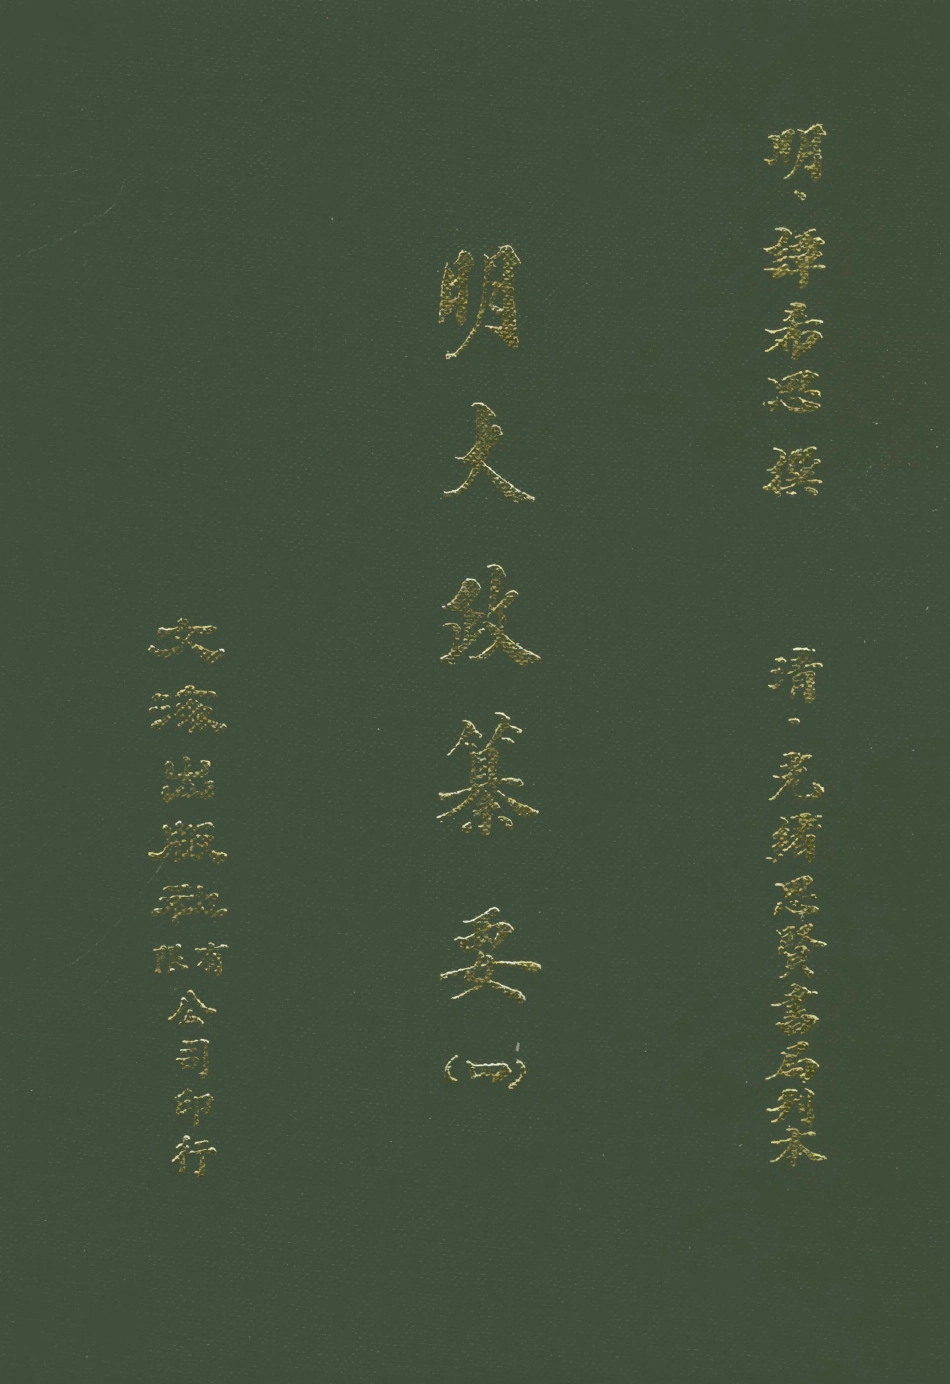 明·譚希思撰　清·光緒思賢書局刊本
明大政纂要(一)
文海出版社有限公司印行